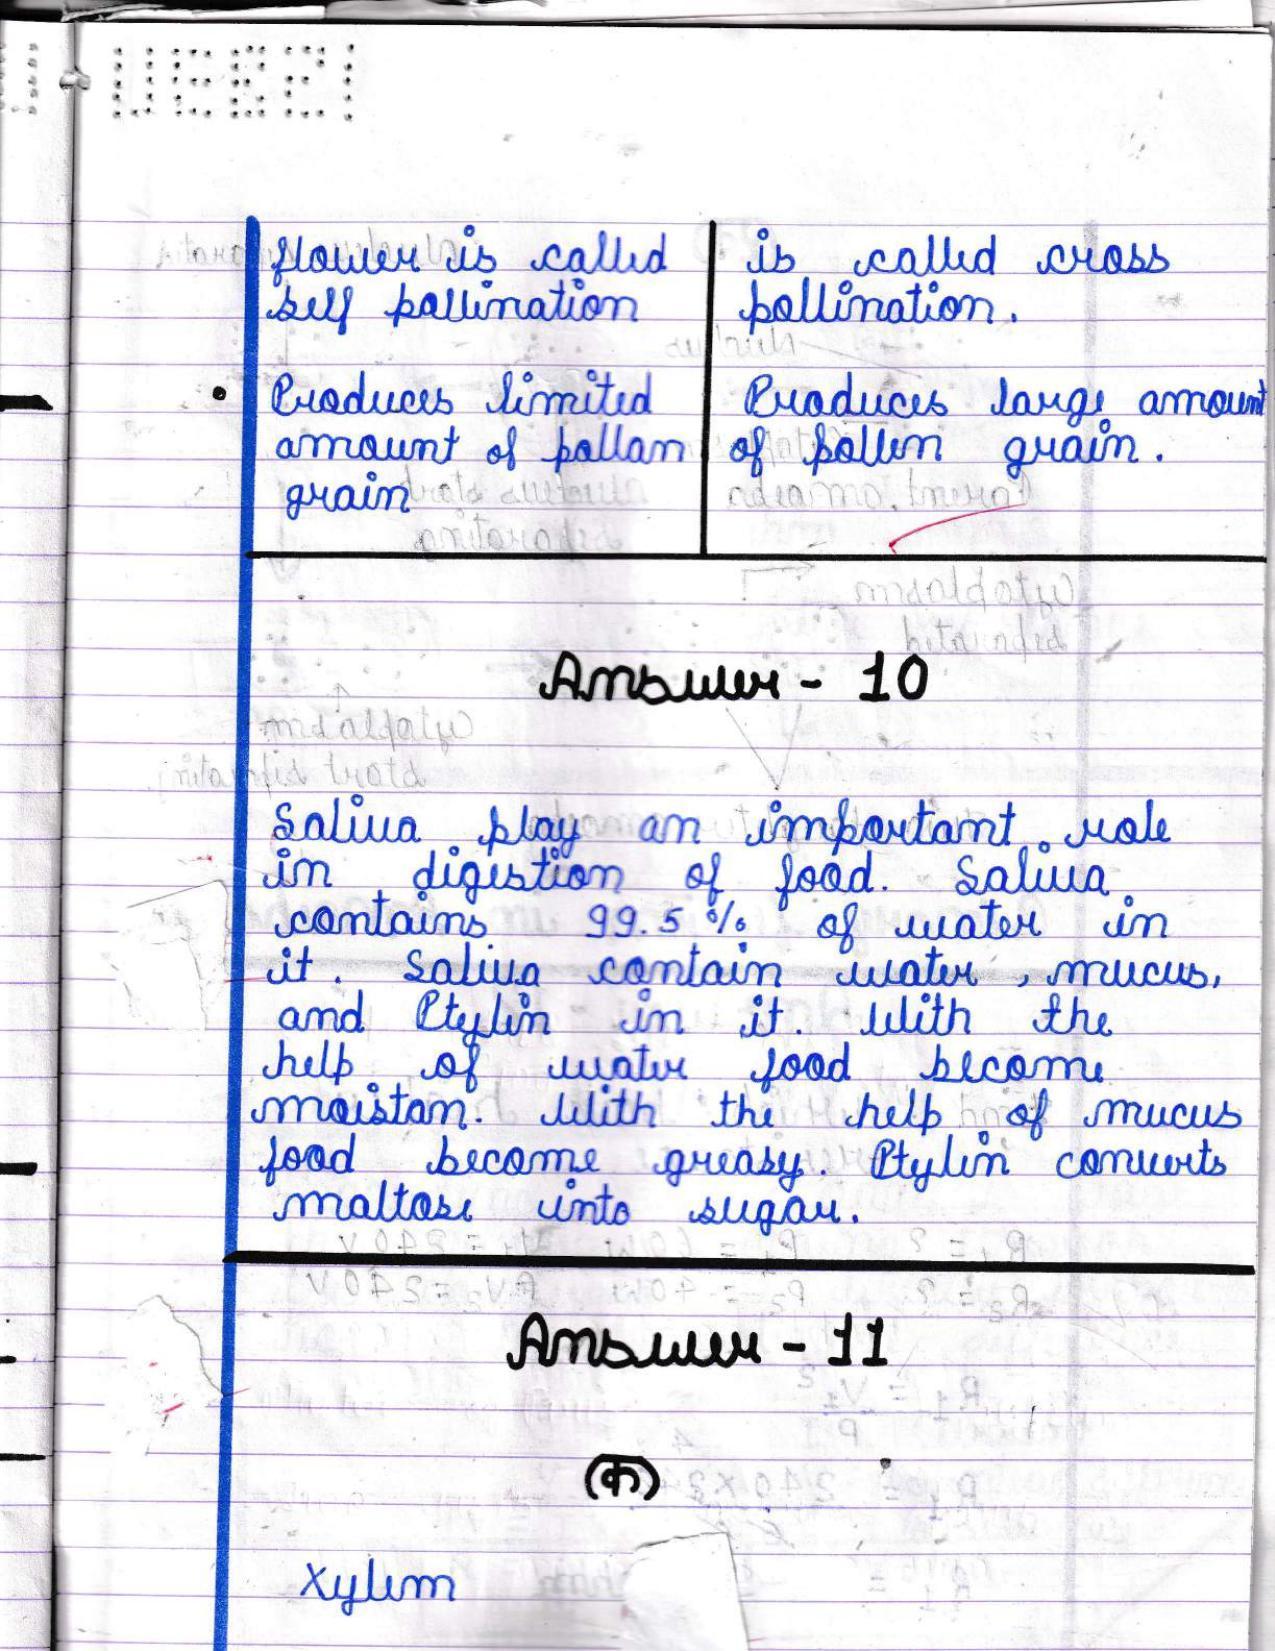 flower is called
self pollination
is called cross
pollination.
• Produces limited
amount of pollan
grain
Produces large amount
of pollen grain.
Answer - 10
Saliva play an important role
in digestion of food. Saliva
contains 99.5 % of water in
it. Saliva contain water, mucus,
and Ptylin in it. With the
help of water food become
moistan. With the help of mucus
food become greasy. Ptylin converts
maltose into sugar.
Answer - 11
(क)
Xylem